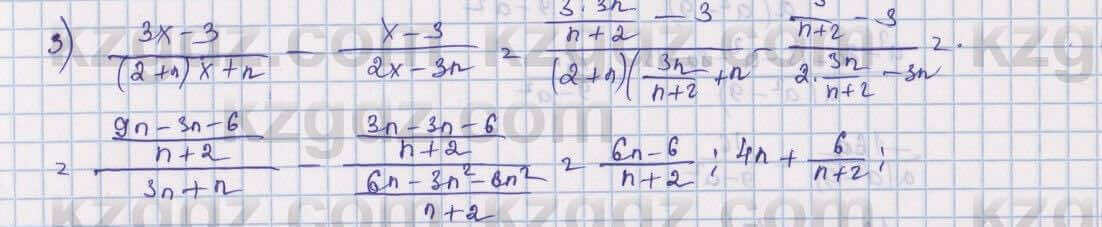 3) (3x-3)/((2+n)x+n) - (x-3)/(2x-3n) = ((3·3n)/(n+2) - 3)/((2+n)(3n/(n+2) + n) - (3/(n+2) - 3)/(2·3n/(n+2) - 3n) = .
= ((9n-3n-6)/(n+2))/(3n+n) - ((3n-3n-6)/(n+2))/((6n-3n²-6n²)/(n+2)) = (6n-6)/(n+2) : 4n + 6/(n+2) :
kzgdz.com